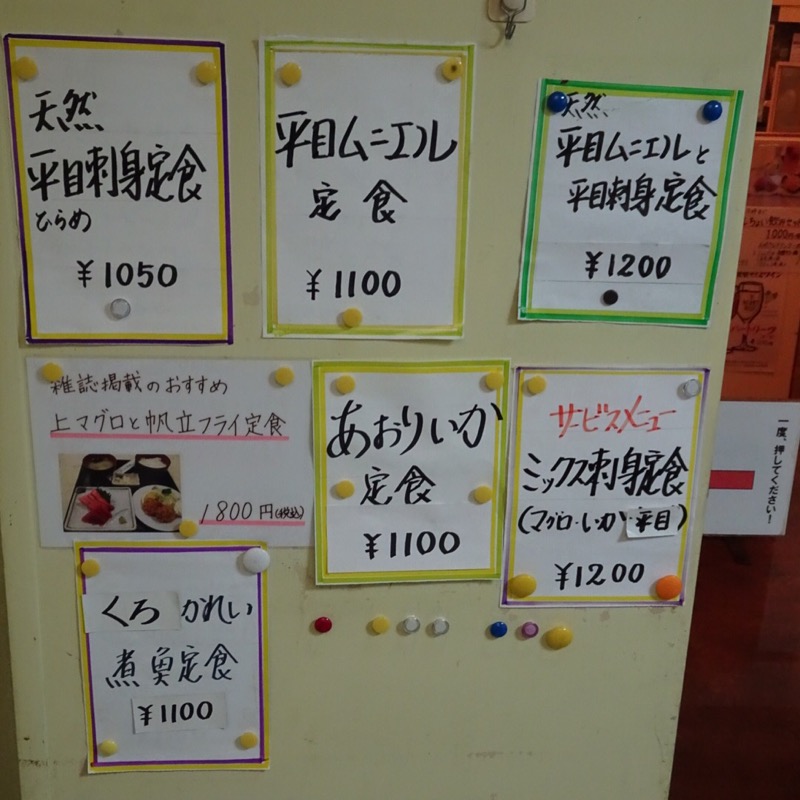 天然
平目刺身定食
ひらめ
¥1050
平目ムニエル
定食
¥1100
天然
平目ムニエルと
平目刺身定食
¥1200
雑誌掲載のおすすめ
上マグロと帆立フライ定食
1800円(税込)
あおりいか
定食
¥1100
サービスメニュー
ミックス刺身定食
(マグロ・いか・平目)
¥1200
くろかれい
煮魚定食
¥1100
一度、押してください!